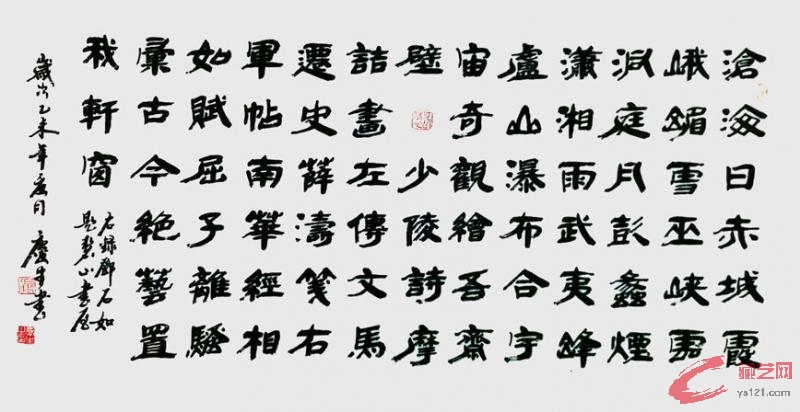 滄海日赤城霞
峨嵋雪巫峽雲
洞庭月彭蠡煙
瀟湘雨武夷峰
盧山瀑布合宇
宙奇觀繪吾齋
壁少陵詩摩
詰畫左傳文馬
遷史薛濤箋右
軍帖南華經相
如賦屈子離騷
彙古今絕藝置
我軒窗
右錄鄧石如
題碧山書屋
歲次乙未年夏日 慶生書
藏艺网
ys121.com